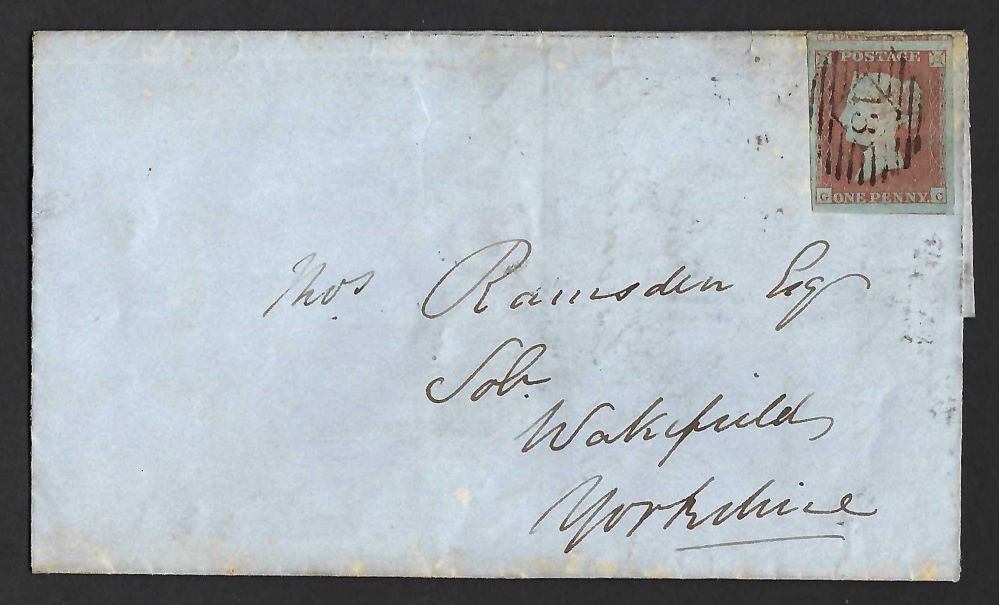 POSTAGE
G ONE PENNY. C
Thos Ramsden Esq
Solr.
Wakefield
Yorkshire